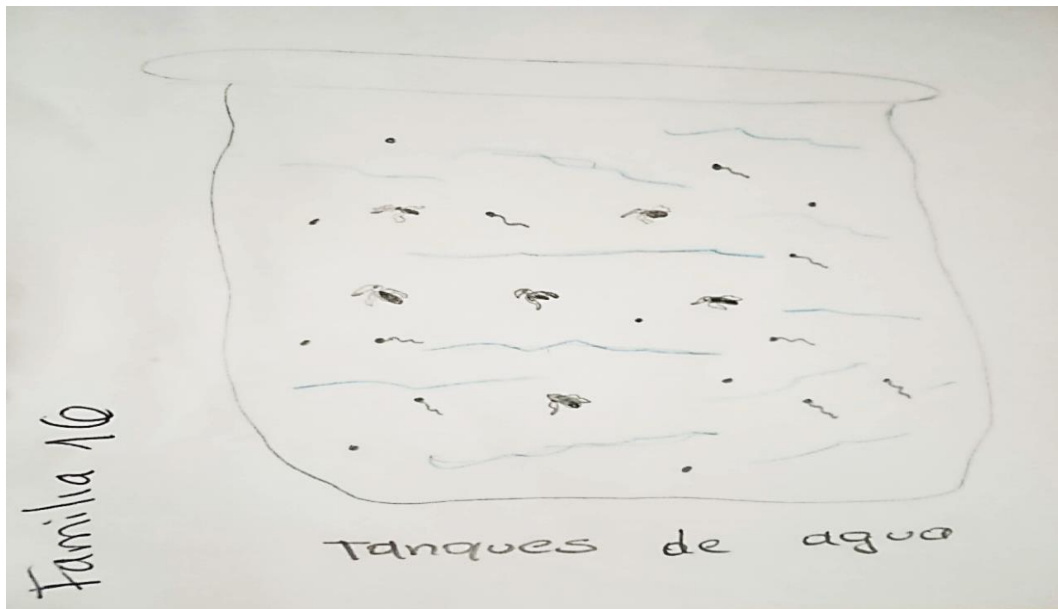 Familia 16
Tanques de agua